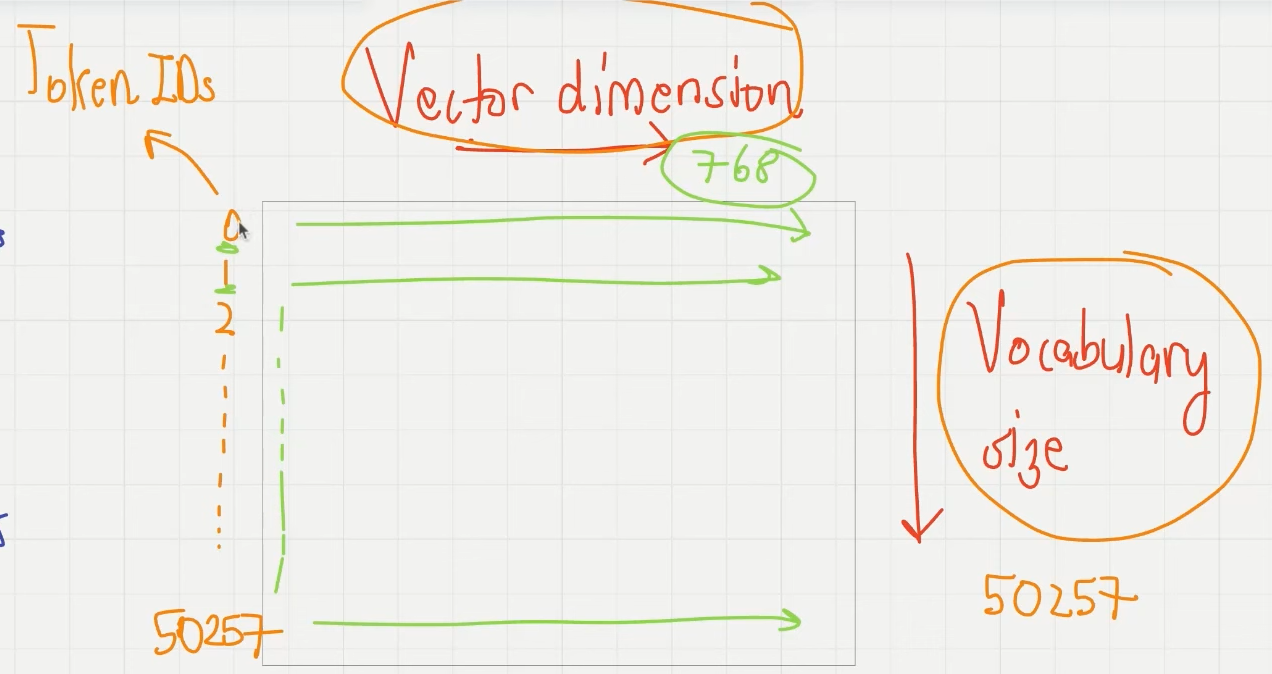 Token IDs
Vector dimension
768
0
1
2
50257
Vocabulary
size
50257